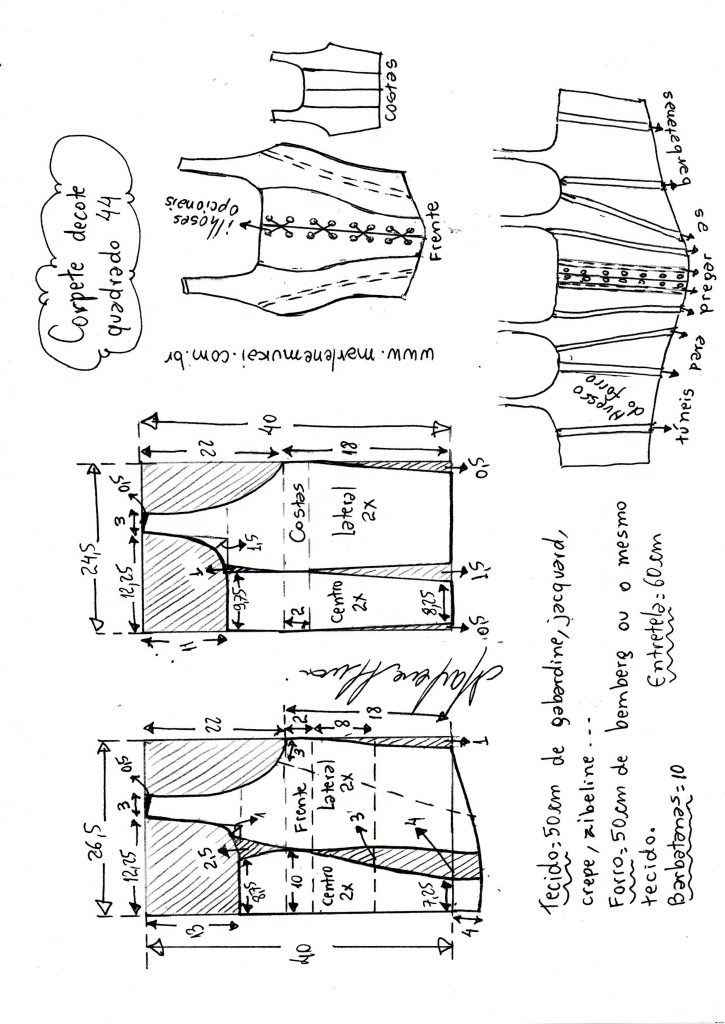 Corpete decote
quadrado 44
ilhoses
opcionais
Frente
costas
www.marlenemukai.com.br
barbatanas
túneis para pregar as
Avesso
do forro
24,5
12,25
3
0,5
22
40
18
11
1,5
1
9,75
2
8,25
Costas
Lateral
2X
Centro
2X
0,5
1,5
0,5
26,5
12,25
3
0,5
22
40
13
1
2,5
8,75
10
2
8
18
3
3
4
7,25
4
1
Frente
Lateral
2X
Centro
2X
Tecido=50cm de gabardine, jacquard,
crepe, zibeline...
Forro=50cm de bemberg ou o mesmo
tecido.
Entretela=60cm
Barbatanas=10